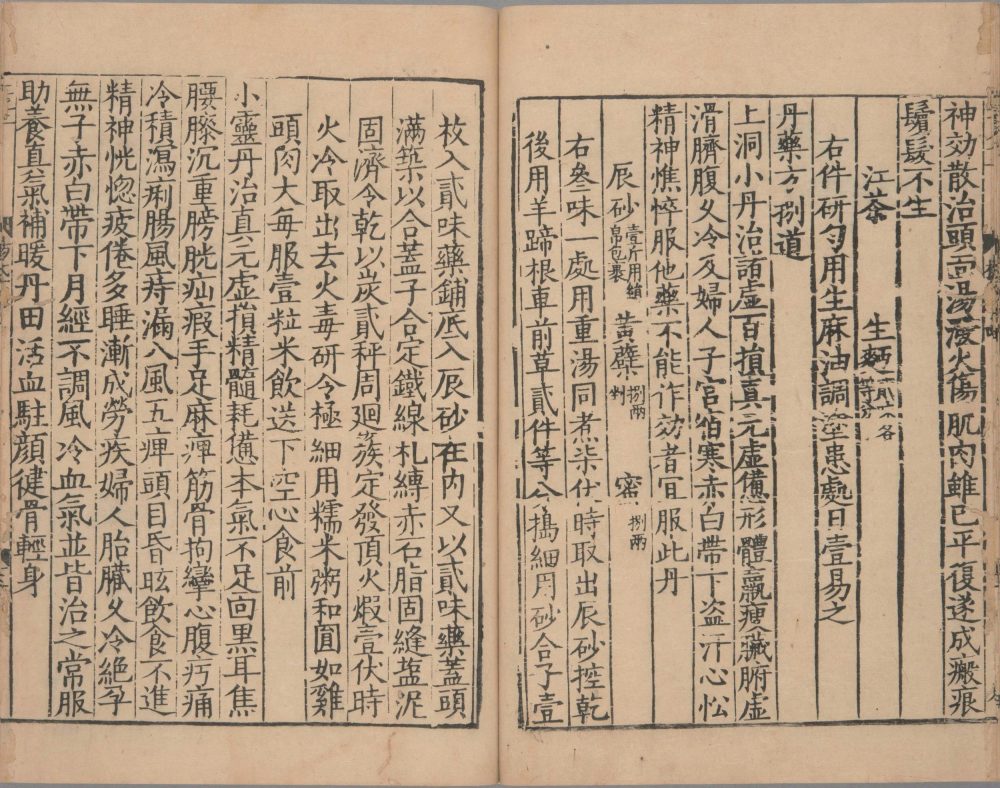 神効散治頭面湯潑火傷肌肉雖已平復遂成瘢痕
鬚髮不生
江茶　生麵等分各
右件研勻用生麻油調塗患處日壹易之
丹藥方捌道
上洞小丹治諸虛百損真元虛憊形體羸瘦藏腑虛
滑臍腹久冷及婦人子宮伯寒赤白帶下盜汗心忪
精神憔悴服他藥不能作効者宜服此丹
辰砂壹斤用絹帛包裹　黃蘗捌兩剉　蜜捌兩
右叁味一處用重湯同煮柒伏時取出辰砂控乾
後用羊蹄根車前草貳件等分搗細用砂合子壹
枚入貳味藥鋪底入辰砂在內又以貳味藥蓋頭
滿築以合蓋子合定鐵線札縛赤石脂固縫塩泥
固濟令乾以炭貳秤周迴簇定發頂火煆壹伏時
火冷取出去火毒研令極細用糯米粥和圓如雞
頭肉大每服壹粒米飲送下空心食前
小靈丹治真元虛損精髓耗憊本氣不足面黑耳焦
腰膝沉重膀胱疝瘕手足麻痺筋骨拘攣心腹疞痛
冷積瀉痢腸風痔漏八風五痺頭目昏眩飲食不進
精神恍惚疲倦多睡漸成勞疾婦人胎臟久冷絕孕
無子赤白帶下月經不調風冷血氣並皆治之常服
助養真氣補暖丹田活血駐顏健骨輕身